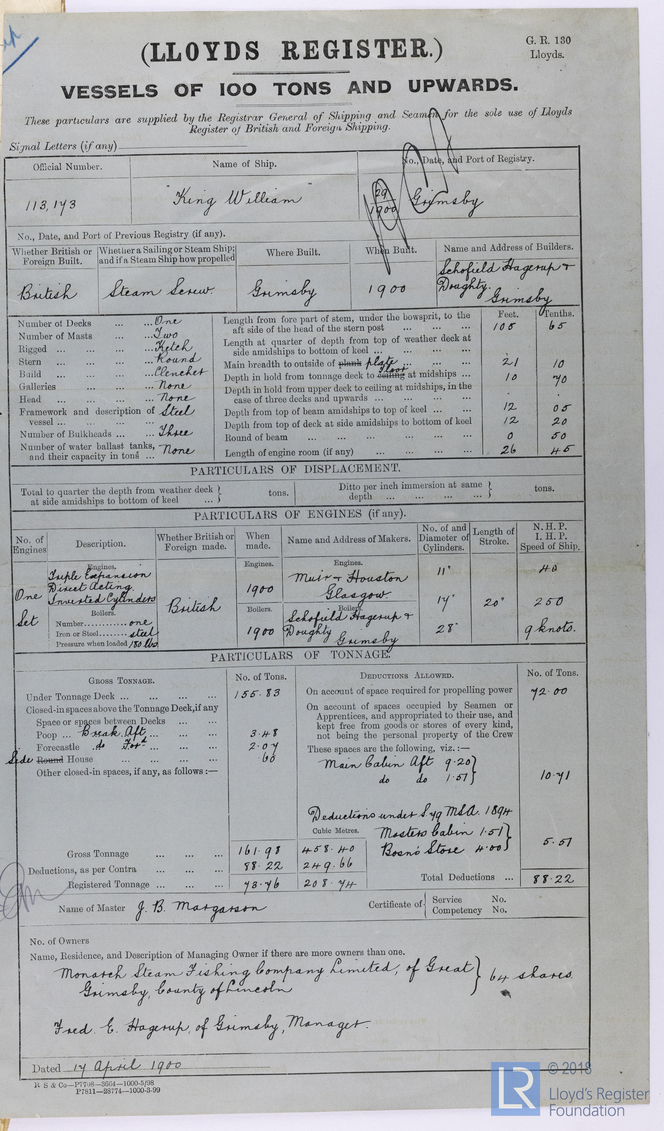 (LLOYDS REGISTER.)
G. R. 130
Lloyds.
VESSELS OF 100 TONS AND UPWARDS.
These particulars are supplied by the Registrar General of Shipping and Seamen for the sole use of Lloyds
Register of British and Foreign Shipping.
Signal Letters (if any)
Official Number. Name of Ship. No., Date, and Port of Registry.
113,173 King William 29 1900 Grimsby
No., Date, and Port of Previous Registry (if any).
Whether British or Foreign Built. Whether a Sailing or Steam Ship; and if a Steam Ship how propelled Where Built. When Built. Name and Address of Builders.
British Steam Screw Grimsby 1900 Schofield Hagerup & Doughty. Grimsby
Feet. Tenths.
Number of Decks ... ... One
Number of Masts ... ... Two
Rigged ... ... ... Ketch
Stern ... ... ... Round
Build ... ... ... Clencher
Galleries ... ... None
Head ... ... ... None
Framework and description of vessel ... ... Steel
Number of Bulkheads ... Three
Number of water ballast tanks, and their capacity in tons ... None
Length from fore part of stem, under the bowsprit, to the aft side of the head of the stern post ... ... ... 105 65
Length at quarter of depth from top of weather deck at side amidships to bottom of keel ... ... ... ...
Main breadth to outside of plank plate ... ... ... 21 10
Depth in hold from tonnage deck to ceiling Floor at midships ... 10 70
Depth in hold from upper deck to ceiling at midships, in the case of three decks and upwards ... ... ... . .
Depth from top of beam amidships to top of keel ... ... 12 05
Depth from top of deck at side amidships to bottom of keel 12 20
Round of beam ... ... ... ... 0 50
Length of engine room (if any) ... ... ... 26 45
PARTICULARS OF DISPLACEMENT.
Total to quarter the depth from weather deck at side amidships to bottom of keel ... ... } tons. Ditto per inch immersion at same depth ... ... ... ... } tons.
PARTICULARS OF ENGINES (if any).
No. of Engines Description. Whether British or Foreign made. When made. Name and Address of Makers. No. of and Diameter of Cylinders. Length of Stroke. N. H. P. I. H. P. Speed of Ship.
One Set
Engines.
Triple Expansion
Direct Acting
Inverted Cylinders
Boilers.
Number one
Iron or Steel steel
Pressure when loaded 180 lbs
British
Engines.
1900
Boilers.
1900
Engines.
Muir & Houston
Glasgow
Boilers.
Schofield Hagerup &
Doughty Grimsby
11"
17"
28"
20"
40
250
9 knots.
PARTICULARS OF TONNAGE.
GROSS TONNAGE. No. of Tons. DEDUCTIONS ALLOWED. No. of Tons.
Under Tonnage Deck ... ... ... 155.83
Closed-in spaces above the Tonnage Deck, if any
Space or spaces between Decks ... ...
Poop ... Break Aft ... ... 3.48
Forecastle do Ford ... ... 2.07
Side Round House ... ... ... .60
Other closed-in spaces, if any, as follows :—
Gross Tonnage ... ... ... 161.98
Deductions, as per Contra ... ... ... 88.22
Registered Tonnage ... ... ... 73.76
Cubic Metres.
458.40
249.66
208.74
On account of space required for propelling power 72.00
On account of spaces occupied by Seamen or
Apprentices, and appropriated to their use, and
kept free from goods or stores of every kind,
not being the personal property of the Crew
These spaces are the following, viz. :—
Main Cabin Aft 9.20
do do 1.51 } 10.71
Deductions under S 79 MSA. 1894
Masters Cabin 1.51
Bosns Store 4.00 } 5.51
Total Deductions ... 88.22
Name of Master J. B. Margarson
Certificate of { Service No.
Competency No.
No. of Owners
Name, Residence, and Description of Managing Owner if there are more owners than one.
Monarch Steam Fishing Company Limited, of Great
Grimsby, County of Lincoln } 64 shares.
Fred. E. Hagerup, of Grimsby, Manager.
Dated 17 April 1900
R S & Co—P7708—3664—1000-5/98
P7811—28774—1000-3-99
LR
© 2018
Lloyd's Register
Foundation